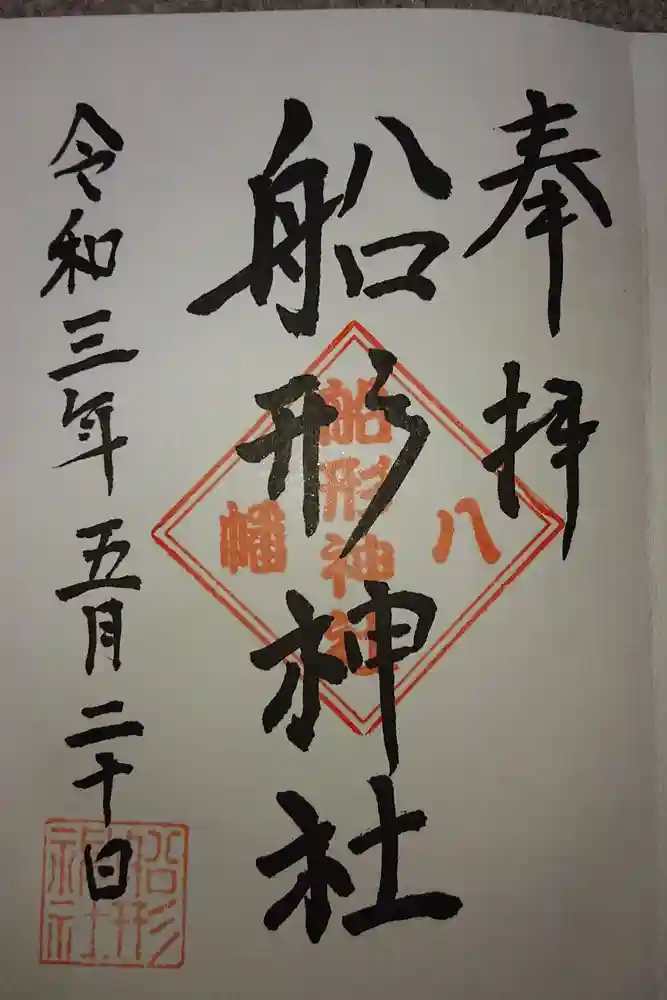 奉拝
船形神社
八幡
船形神社
令和三年五月二十日
船形
神社